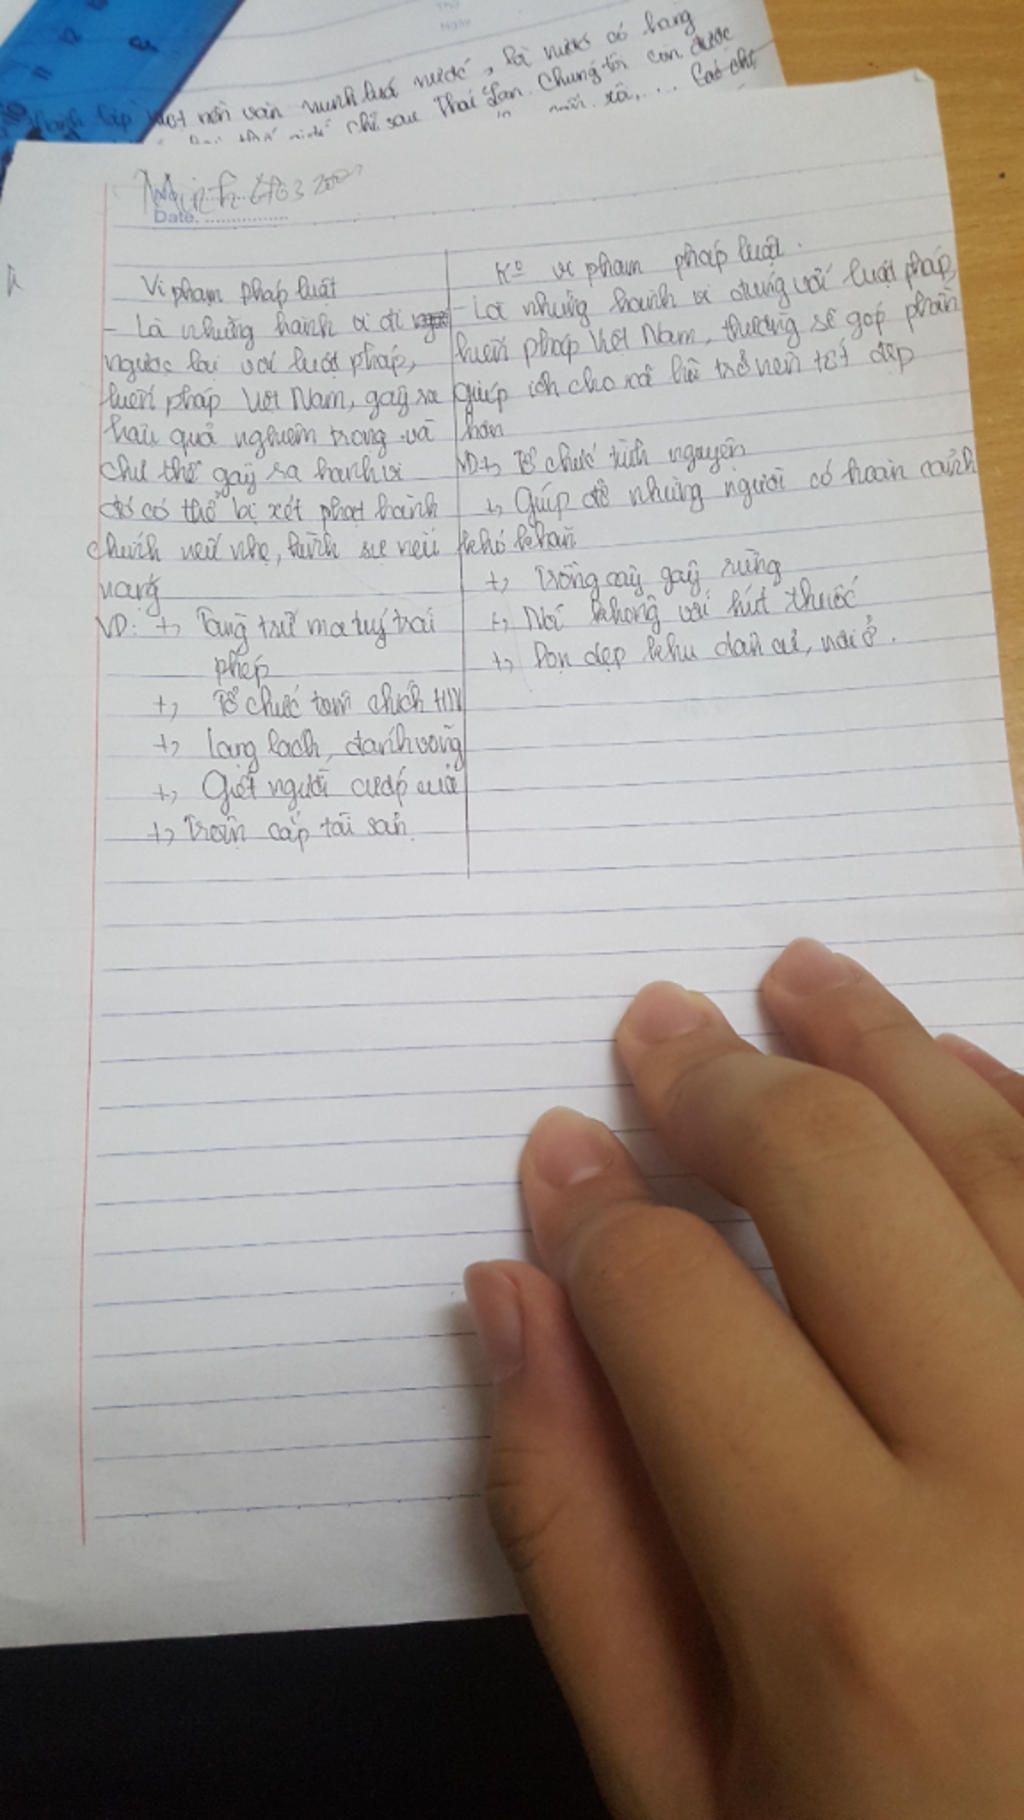 nền văn minh lúa nước, là nước có hàng
chỉ sau Thái Lan. Chúng tôi còn được
Minh
Date:
Vi phạm pháp luật
- Là những hành vi đi
ngược lại với luật pháp,
hiến pháp Việt Nam, gây ra
hậu quả nghiêm trọng và
chủ thể gây ra hành vi
đó có thể bị xét phạt hành
chính nếu nhẹ, hình sự nếu
nặng
VD: +, Tàng trữ ma tuý trái
phép
+, Tổ chức tiêm chích HIV
+, Lạng lách, đánh võng
+, Giết người cướp của
+, Trộm cắp tài sản.
Kº vi phạm pháp luật.
- Là những hành vi đúng với luật pháp,
hiến pháp Việt Nam, thường sẽ góp phần
giúp ích cho xã hội trở nên tốt đẹp
hơn
VD +, Tổ chức tình nguyện
+, Giúp đỡ những người có hoàn cảnh
khó khăn
+, Trồng cây gây rừng
+, Nói không với hút thuốc
+, Dọn dẹp khu dân cư, nơi ở.